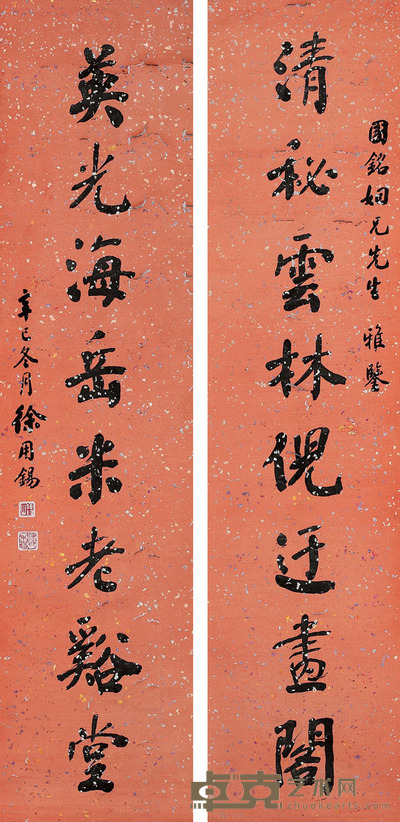 國銘姻兄先生 雅鑒
清秘雲林倪迂畫閣
英光海岳米老谿堂
辛巳冬月徐用錫
卓克艺术网